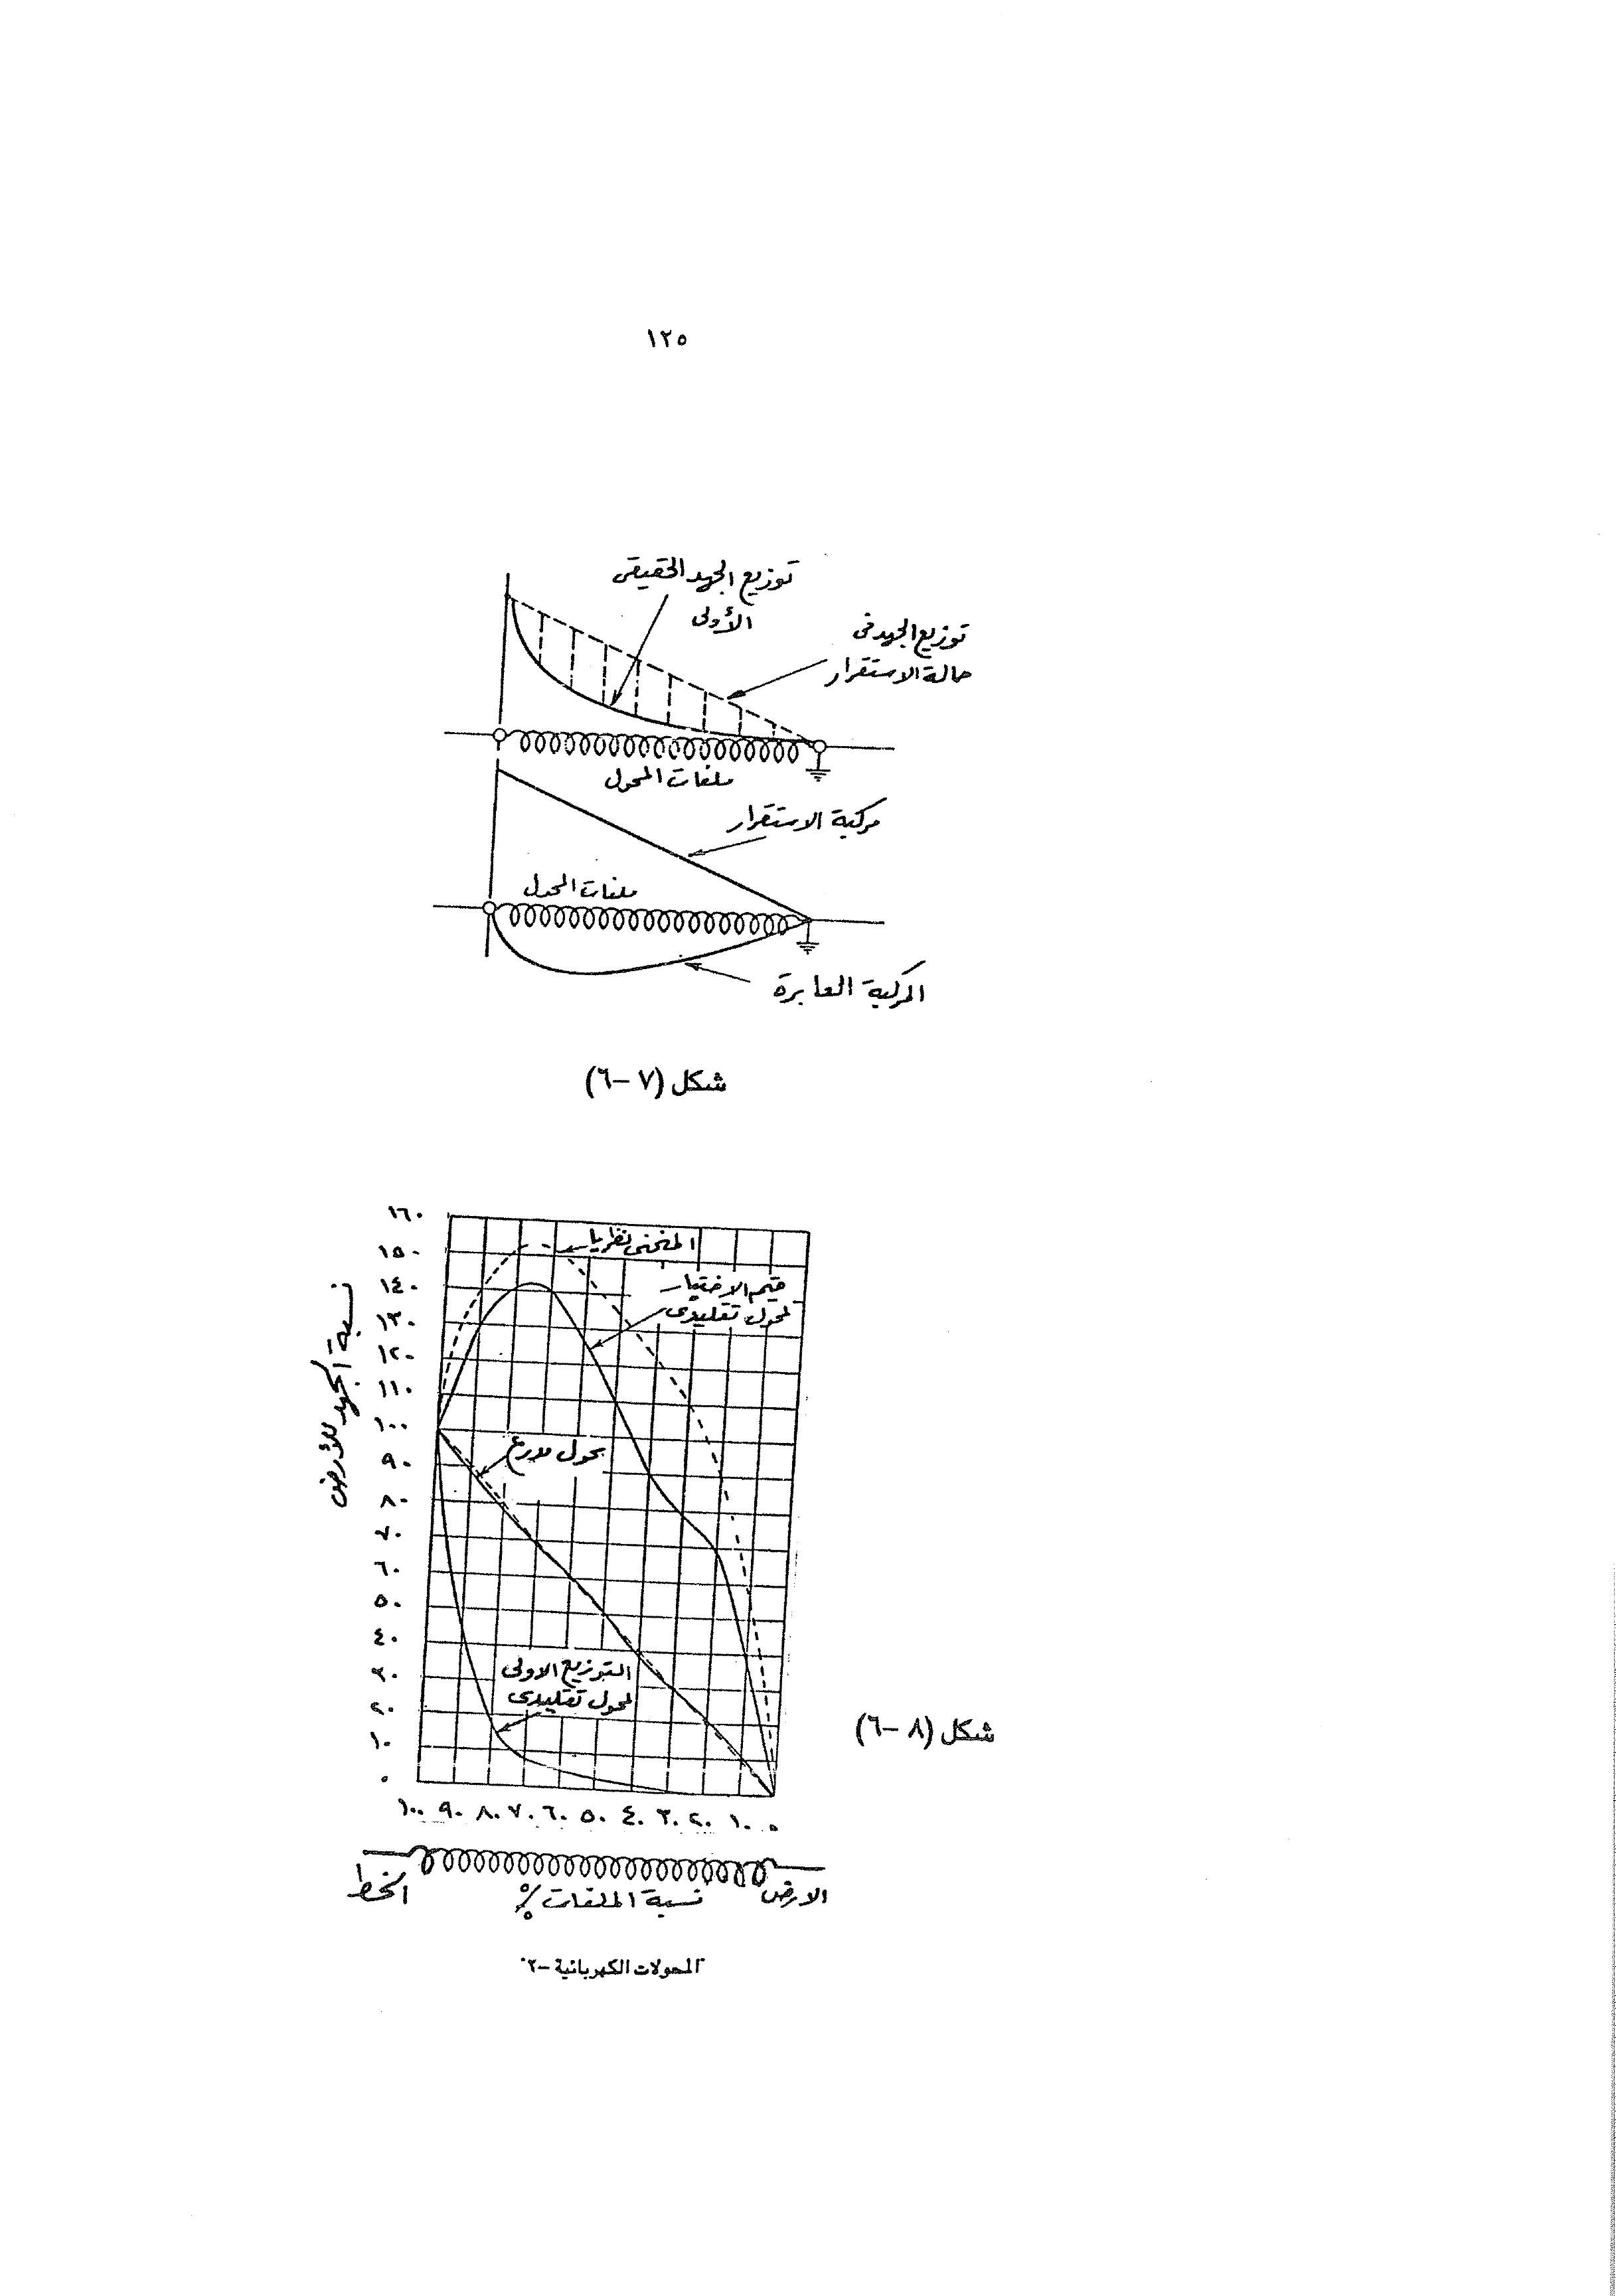 ١٢٥
توزيع الجهد الحقيقى
الأولى
توزيع الجهد فى
حالة الاستقرار
ملفات المحول
مركبة الاستقرار
ملفات المحول
المركبة العابرة
شكل (٧ –٦)
١٦٠
١٥٠
١٤٠
١٣٠
١٢٠
١١٠
١٠٠
٩٠
٨٠
٧٠
٦٠
٥٠
٤٠
٣٠
٢٠
١٠
٠
نسبة الجهد للأرض
المنحنى نظريا
قيم الاختبار
لمحول تقليدى
محول مدرع
التوزيع الاولى
لمحول تقليدى
شكل (٨ –٦)
١٠٠ ٩٠ ٨٠ ٧٠ ٦٠ ٥٠ ٤٠ ٣٠ ٢٠ ١٠ ٠
الخط
الارض
نسبة الملفات %
"المحولات الكهربائية –٢"